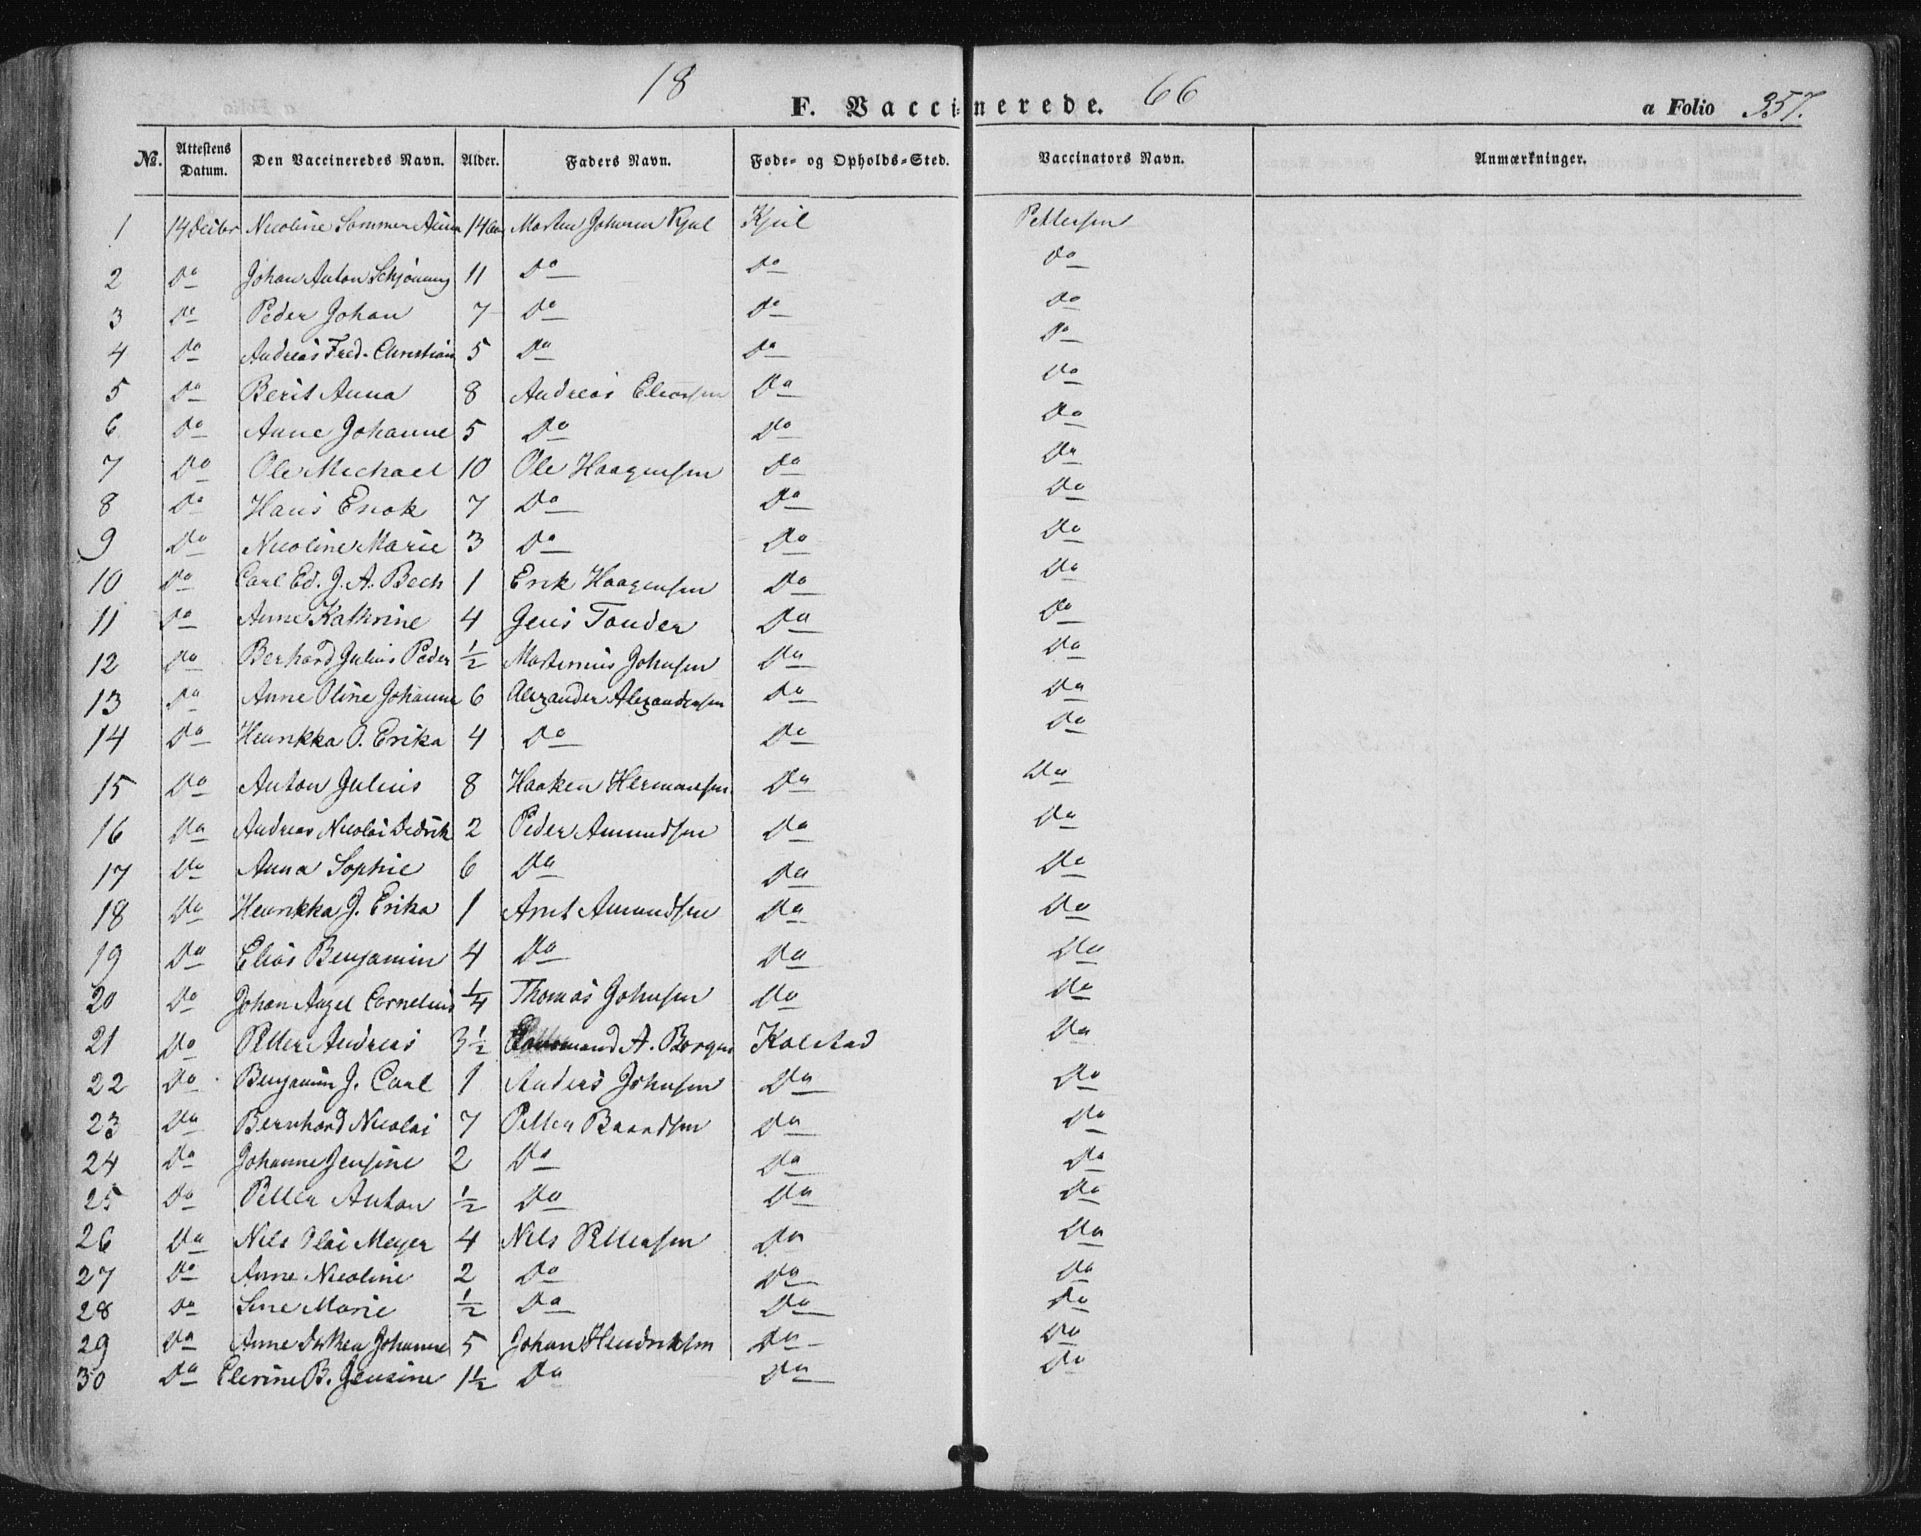 18 66
F. Vaccinerede. a Folio 357.
No. Attestens Datum. Den Vaccineredes Navn. Alder. Faders Navn. Føde- og Opholds-Sted. Vaccinators Navn. Anmærkninger.
1 14 Decbr Nicoline Sommer 14 Morten Johnsen Kjul Kjul Pettersen
2 Do Johan Anton Schjönning 11 Do Do Do
3 Do Peder Johan 7 Do Do Do
4 Do Andreas Fred. Christian 5 Do Do Do
5 Do Berit Anna 8 Andreas Eliassen Do Do
6 Do Anne Johanne 5 Do Do Do
7 Do Ole Michael 10 Ole Haagensen Do Do
8 Do Hans Enok 7 Do Do Do
9 Do Nicoline Marie 3 Do Do Do
10 Do Carl Ed. J. A. Bech 1 Erik Haagensen Do Do
11 Do Anne Kathrine 4 Jens Tonder Do Do
12 Do Berhard Julius Peder 1/2 Martinius Johnsen Do Do
13 Do Anne Oline Johanne 6 Alexander Alexandersen Do Do
14 Do Henrikka O. Erika 4 Do Do Do
15 Do Anton Julius 8 Haaken Hermansen Do Do
16 Do Andreas Nicolai Didrik 2 Peder Amundsen Do Do
17 Do Anna Sophie 6 Do Do Do
18 Do Henrikka J. Erika 1 Arnt Amundsen Do Do
19 Do Elias Benjamin 4 Do Do Do
20 Do Johan Angel Cornelius 1/4 Thomas Johnsen Do Do
21 Do Petter Andreas 3 1/2 A. Borgen Kolstad Do
22 Do Benjamin J. Carl 1 Anders Johnsen Do Do
23 Do Bernhard Nicolai 7 Petter Baardsen Do Do
24 Do Johanne Jensine 2 Do Do Do
25 Do Petter Anton 1/2 Do Do Do
26 Do Nils Olai Meyer 4 Nils Pettersen Do Do
27 Do Anne Nicoline 2 Do Do Do
28 Do Sine Marie 1/2 Do Do Do
29 Do Anne Johanne 5 Johan Hendriksen Do Do
30 Do Elerine B. Jensine 1 1/2 Do Do Do